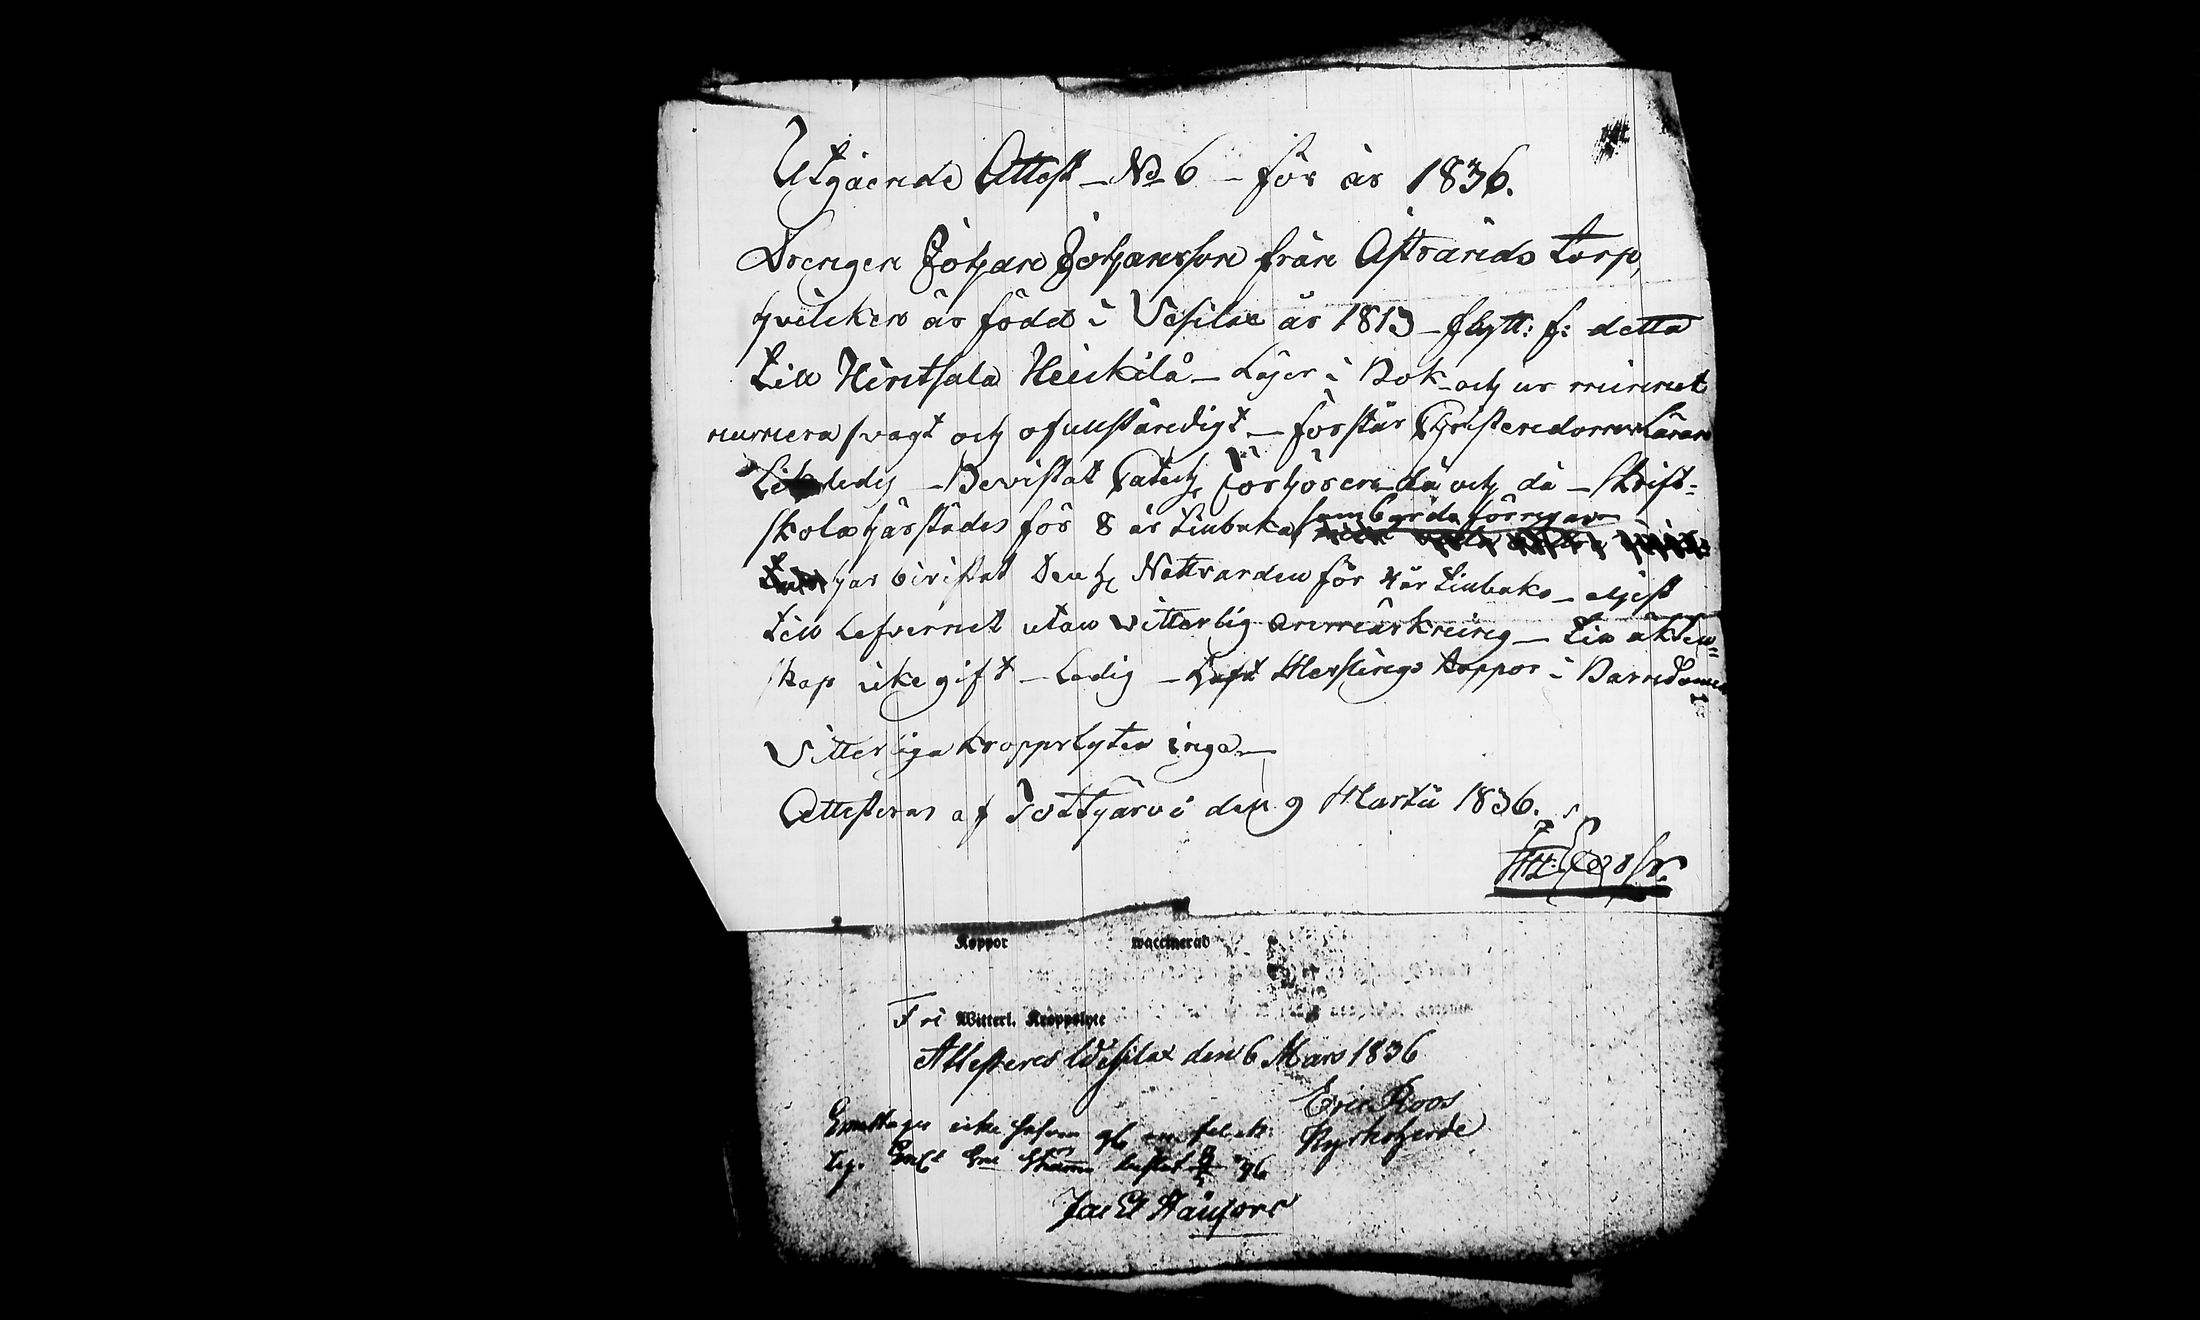 Utgående Attest – No 6 – för år 1836.
Drengen Johan Johansson från Åstrands torp,
hvilken är född i Vesilax år 1813 – flytt: f: detta
till Hintsala Heickilå – Läser i Bok och ur minnet
numera svagt och ofullständigt – förstår Christendoms Läran
Lik ledes – Bevistat Catech förhören då och då – Skrift-
skola härstädes för 8 år tillbaka samt börda förregar
har bevistat Den h Nattvarden för 4 år tillbaka – eljest
till Lefvernet utan vitterlig anmärkning – till äkten-
skap icke gift – Ledig – haft Messlings koppor i Barndomen
Vitterliga kroppslyten inga –
Attesteras af Tottijärvi den 9 Martii 1836.
Koppor waccinerad
Fri Witterl. Kroppslyte
Attesteras Wesilax den 6 Mars 1836
Eric Roos
icke
Kyrkoherde
Jac El